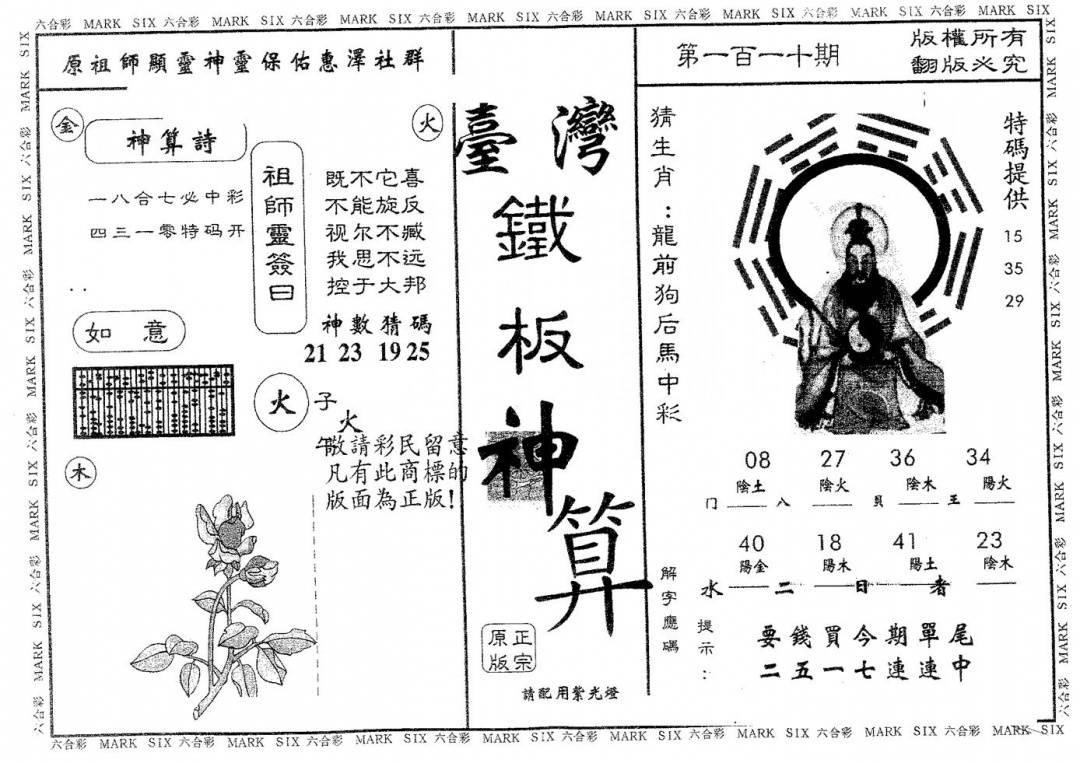 六合彩 MARK SIX 六合彩 MARK SIX 六合彩 MARK SIX 六合彩 MARK SIX 六合彩 MARK SIX 六合彩 MARK SIX 六合彩 MARK SIX 六合彩 MARK SIX
原祖師顯靈神靈保佑惠澤社群
金
神算詩
火
一八合七必中彩
四三一零特码开
祖師靈簽曰
既不它喜
不能旋反
视尔不臧
我思不远
控于大邦
神數猜碼
21 23 19 25
如意
火
子
火
午
敬請彩民留意
凡有此商標的
版面為正版!
木
臺灣
鐵板神算
正宗
原版
請配用紫光燈
第一百一十期
版權所有
翻版必究
猜生肖:龍前狗后馬中彩
特碼提供
15
35
29
08 27 36 34
陰土 陰火 陰木 陽火
门 八 贝 王
40 18 41 23
陽金 陽木 陽土 陰木
水 二 日 者
解字應碼
提示:
要錢買今期單尾
二五一七連連中
六合彩 MARK SIX 六合彩 MARK SIX 六合彩 MARK SIX 六合彩 MARK SIX 六合彩 MARK SIX 六合彩 MARK SIX 六合彩 MARK SIX 六合彩 MARK SIX